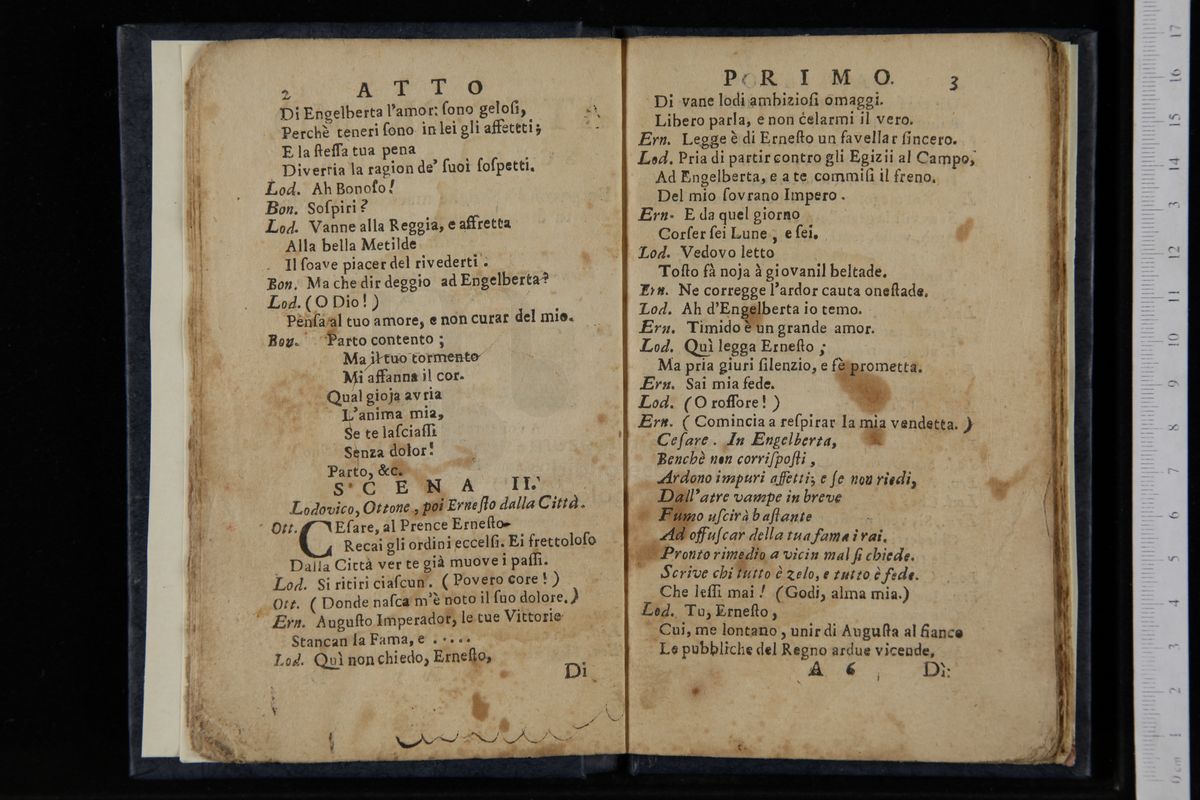 2 ATTO
Di Engelberta l'amor: ſono geloſi,
Perchè teneri ſono in lei gli affetti;
E la ſteſſa tua pena
Diverria la ragion de' ſuoi ſoſpetti.
Lod. Ah Bonoſo!
Bon. Soſpiri?
Lod. Vanne alla Reggia, e affretta
Alla bella Metilde
Il ſoave piacer del rivederti.
Bon. Ma che dir deggio ad Engelberta?
Lod. (O Dio!)
Penſa al tuo amore, e non curar del mio.
Bon. Parto contento;
Ma il tuo tormento
Mi affanna il cor.
Qual gioja avria
L'anima mia,
Se te laſciaſſi
Senza dolor!
Parto, &c.
SCENA II.
Lodovico, Ottone, poi Erneſto dalla Città.
Ott. CEſare, al Prence Erneſto
Recai gli ordini eccelſi. Ei frettoloſo
Dalla Città ver te già muove i paſſi.
Lod. Si ritiri ciaſcun. (Povero core!)
Ott. (Donde naſca m'è noto il ſuo dolore.)
Ern. Auguſto Imperador, le tue Vittorie
Stancan la Fama, e .....
Lod. Quì non chiedo, Erneſto,
Di
PRIMO. 3
Di vane lodi ambizioſi omaggi.
Libero parla, e non celarmi il vero.
Ern. Legge è di Erneſto un favellar ſincero.
Lod. Pria di partir contro gli Egizii al Campo,
Ad Engelberta, e a te commiſi il freno.
Del mio ſovrano Impero.
Ern. E da quel giorno
Corſer ſei Lune, e ſei.
Lod. Vedovo letto
Toſto fà noja à giovanil beltade.
Ern. Ne corregge l'ardor cauta oneſtade.
Lod. Ah d'Engelberta io temo.
Ern. Timido è un grande amor.
Lod. Quì legga Erneſto;
Ma pria giuri ſilenzio, e fè prometta.
Ern. Sai mia fede.
Lod. (O roſſore!)
Ern. (Comincia a reſpirar la mia vendetta.)
Ceſare. In Engelberta,
Benchè non corriſpoſti,
Ardono impuri affetti; e ſe non riedi,
Dall'atre vampe in breve
Fumo uſcirà baſtante
Ad offuſcar della tua fama i rai.
Pronto rimedio a vicin mal ſi chiede.
Scrive chi tutto è zelo, e tutto è fede.
Che leſſi mai! (Godi, alma mia.)
Lod. Tu, Erneſto,
Cui, me lontano, unir di Auguſta al fianco
Le pubbliche del Regno ardue vicende,
A 6 Di: